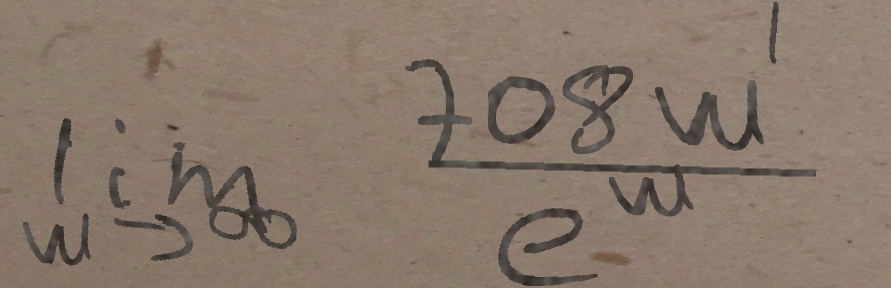 \lim_{w \to \infty} \frac{708w^1}{e^w}